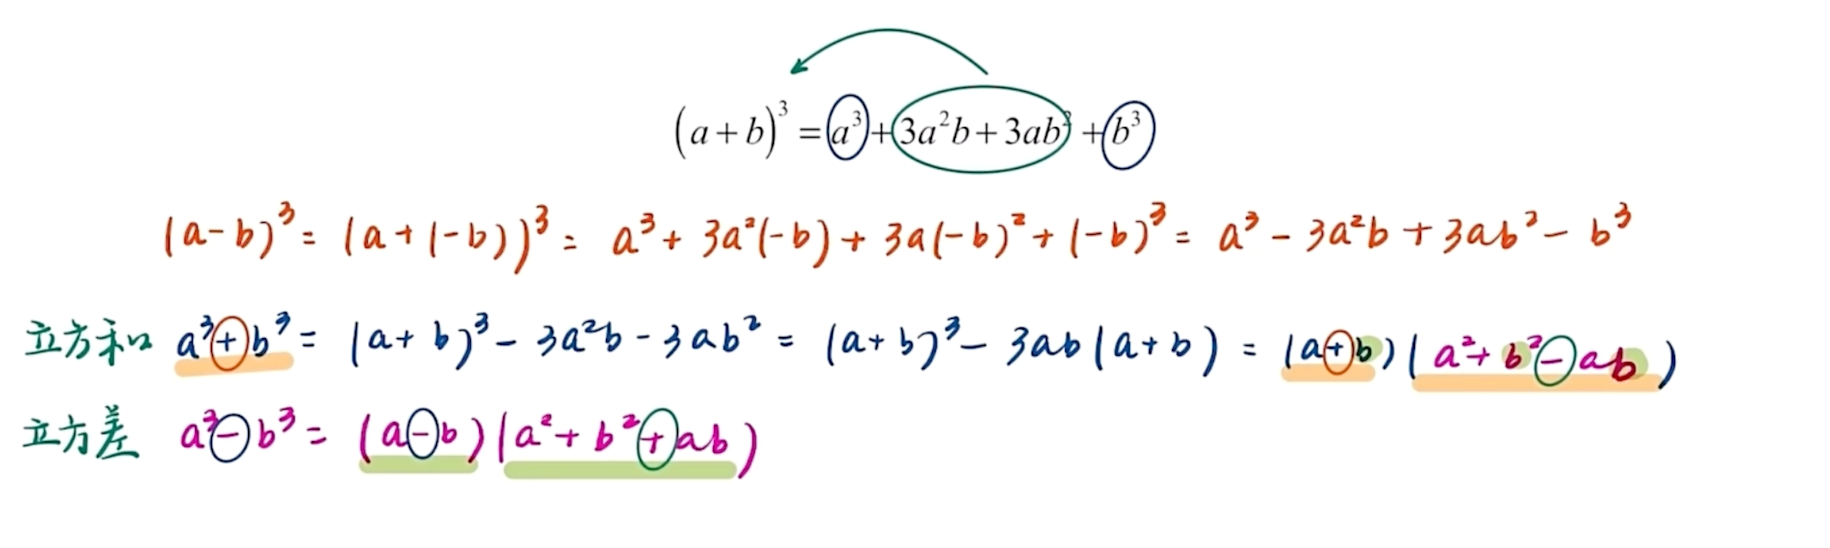 (a+b)³ = a³+3a²b+3ab²+b³
(a-b)³ = (a+(-b))³ = a³+3a²(-b)+3a(-b)²+(-b)³ = a³-3a²b+3ab²-b³
立方和 a³+b³ = (a+b)³-3a²b-3ab² = (a+b)³-3ab(a+b) = (a+b)(a²+b²-ab)
立方差 a³-b³ = (a-b)(a²+b²+ab)